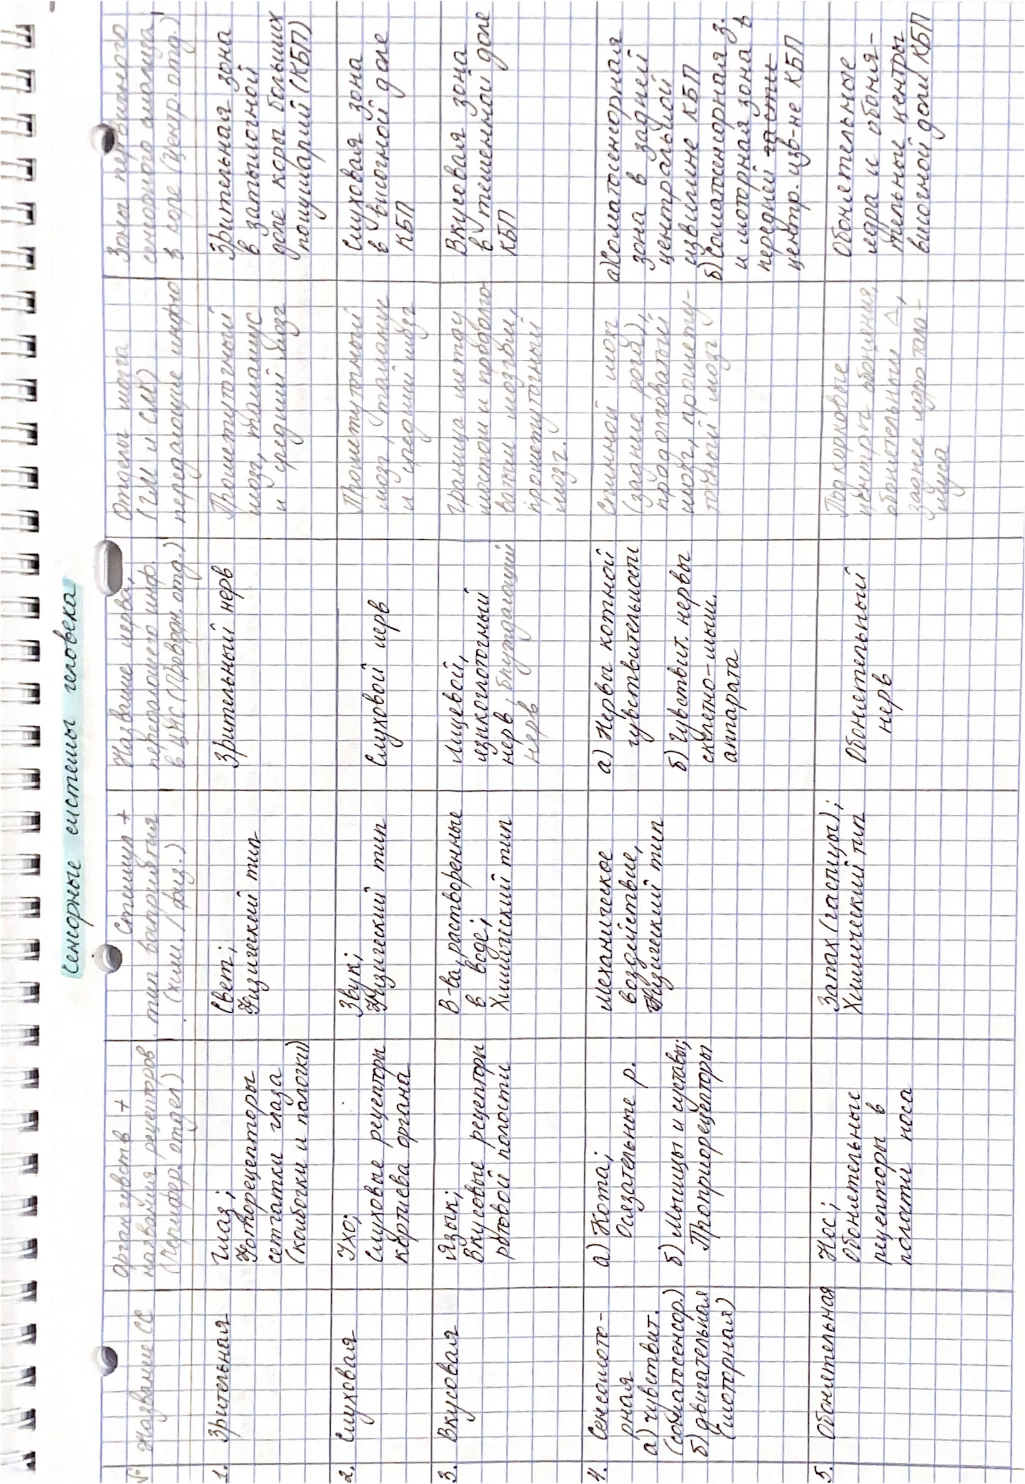 Сенсорные системы человека
№
Название СС
Орган чувств +
название рецепторов
(Перифер. отдел)
Стимул +
тип восприятия
(хим. / физ.)
Название нерва,
передающего инф.
в ЦНС (Проводн. отд.)
Отделы мозга
(ГМ и СМ)
передающие инфо
Зоны первичного
сенсорного анализа
в коре (Центр. отд.)
1.
Зрительная
Глаз;
Фоторецепторы
сетчатки глаза
(колбочки и палочки)
Свет;
Физический тип
Зрительный нерв
Промежуточный
мозг, таламус
и средний мозг
Зрительная зона
в затылочной
доле коры больших
полушарий (КБП)
2.
Слуховая
Ухо;
Слуховые рецепторы
кортиева органа
Звук;
Физический тип
Слуховой нерв
Промежуточный
мозг, таламус
и средний мозг
Слуховая зона
в височной доле
КБП
3.
Вкусовая
Язык;
Вкусовые рецепторы
ротовой полости
В-ва, растворенные
в воде;
Химический тип
Лицевой,
языкоглоточный
нерв, блуждающий
нерв
Граница между
мостом и продолго
ватым мозгом,
промежуточный
мозг.
Вкусовая зона
в теменной доле
КБП
4.
Сенсомото-
рная
а) чувствит.
(соматосенсор.)
б) двигательная
(моторная)
а) Кожа;
Осязательные р.
б) Мышцы и суставы;
Проприорецепторы
Механическое
воздействие,
Физический тип
а) Нервы кожной
чувствительности
б) Чувствит. нервы
скелетно-мыш.
аппарата
Спинной мозг
(задние рога),
продолговатый
мозг, промежу-
точный мозг
а) Соматосенсорная
зона в задней
центральной
извилине КБП
б) Соматосенсорная з.
и моторная зона в
передней части
центр. изв-не КБП
5.
Обонятельная
Нос;
Обонятельные
рецепторы в
полости носа
Запах (частицы);
Химический тип
Обонятельный
нерв
Подкорковые
центры обоняния,
обонятельный △,
заднее ядро тала-
муса
Обонятельные
ядра и обоня-
тельные центры
височной доли КБП